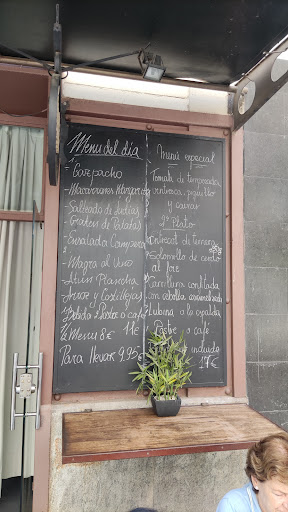 Menu del día
1º
Gazpacho
Macarrones
Salteado de Judías
Gratén de Patatas
Ensalada Campera
2º
Magra al Vino
Atún Plancha
Arroz y Costillejas
Bebida Postre o café 11€
1/2 Menu 8€
Para llevar 9.95€
Menú especial
Tomate de temporada,
ventresca, piquillo
y caviar
2º Plato
Entrecot de ternera
Solomillo de cerdo
al foie
Carrillera confitada
con cebolla caramelizada
Lubina a la espalda
Postre o café
incluido
17€